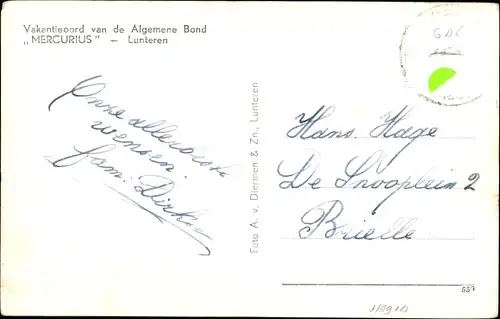 Vakantieoord van de Algemene Bond
„MERCURIUS" – Lunteren
Onze allerbeste
wensen.
fam. Dirkse
Foto A. v. Diermen & Zn., Lunteren
Hans. Hage
De Snooplein 2
Brielle
559